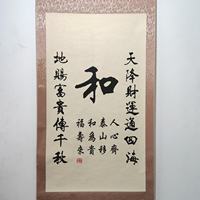 天降財運通四海
和
人心齊
泰山移
和為貴
福壽來
地賜富貴傳千秋